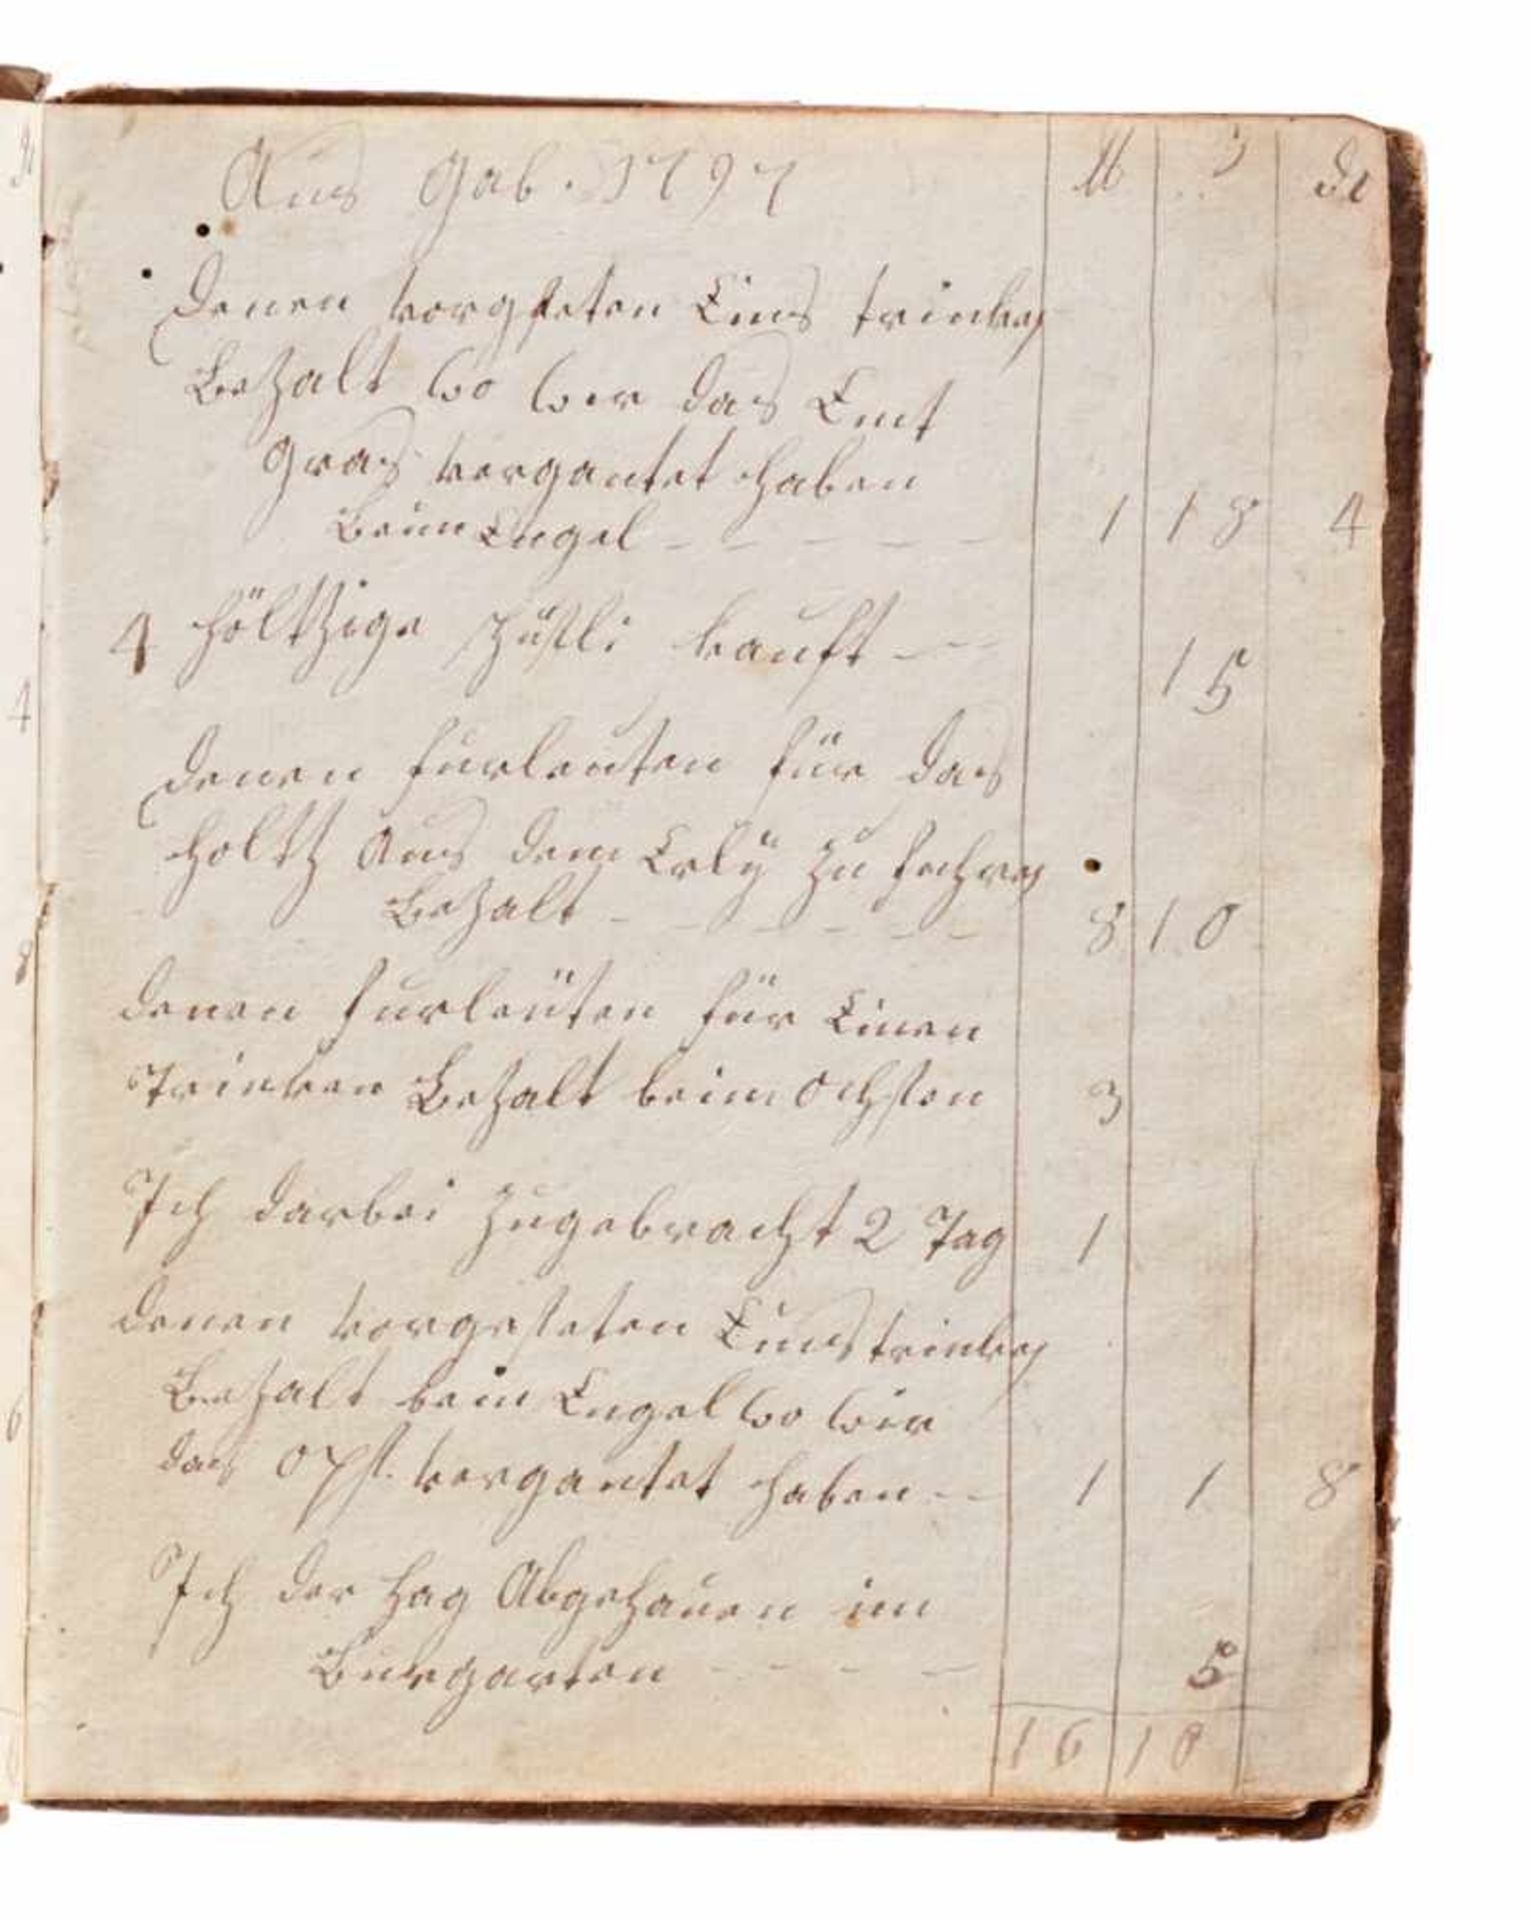 Aus Gab. 1797 lb ß dl
denen vorgseten Eins trinken
bezalt wo wir das Emt
gras vergantet haben
beim Engel - - - - - 1 18 4
4 höltzige schüsli kauft - - 15
denen furleuten für das
holtz aus dem Erly zu fahren
bezalt - - - - - - 8 10
denen furleüten für Einen
Trinken bezalt beim ochsten 3
Ich darbei zugebracht 2 Tag 1
denen vorgeseten Eins trinken
bezalt beim Engel wo wir
das opst. vergantet haben - - 1 1 8
Ich der hag Abgehauen im
burgarten - - - - 5
16 10
4
8
6